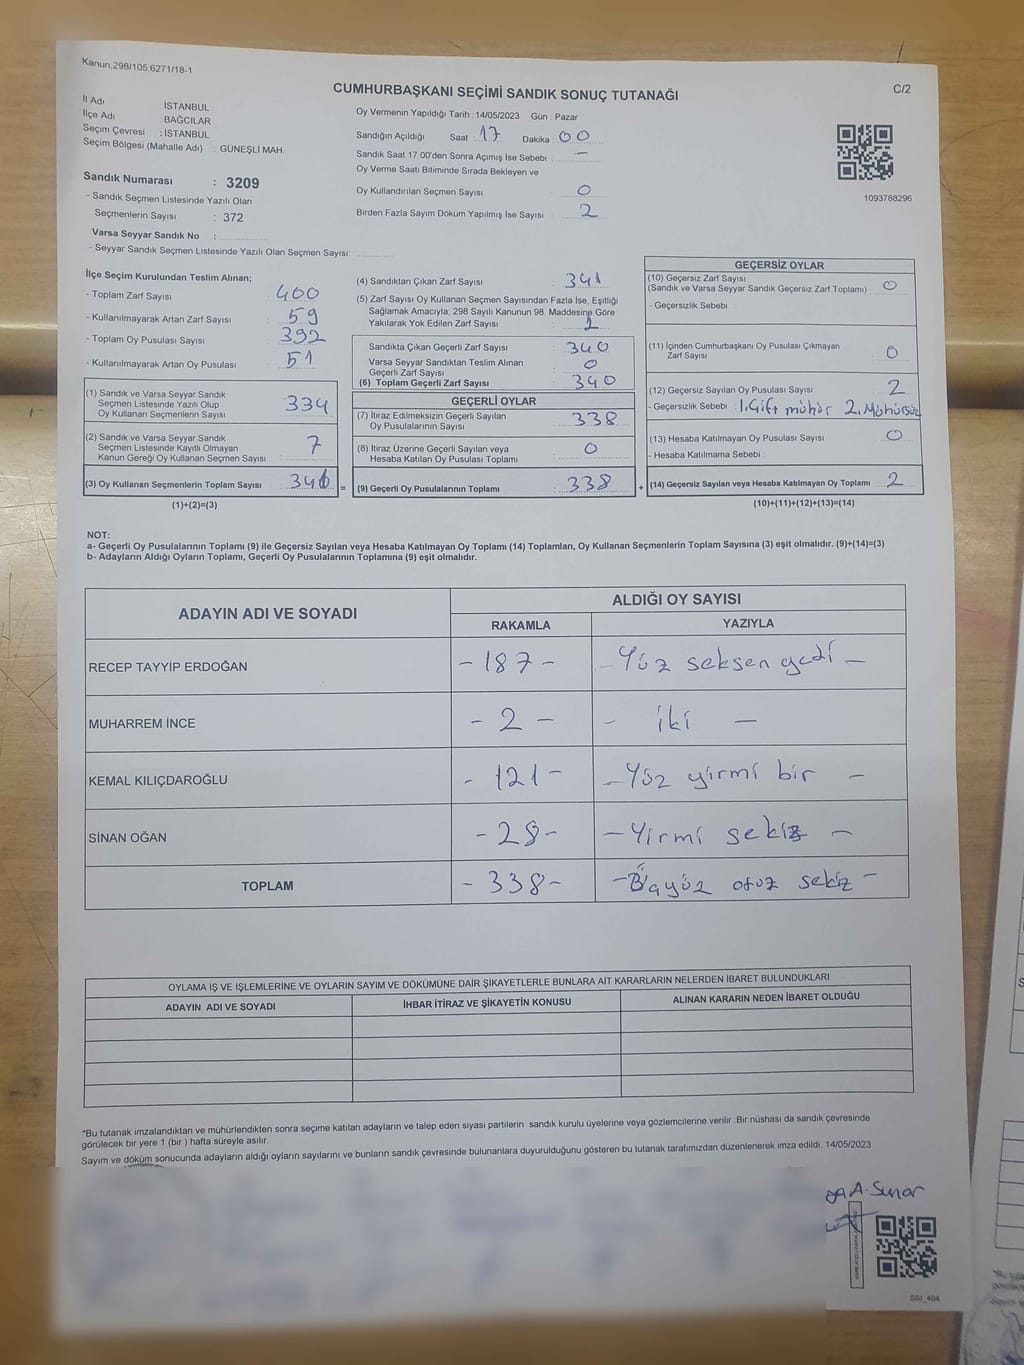 Kanun;298/105,6271/18-1
CUMHURBAŞKANI SEÇİMİ SANDIK SONUÇ TUTANAĞI
C/2
İl Adı : İSTANBUL
İlçe Adı : BAĞCILAR
Seçim Çevresi : İSTANBUL
Seçim Bölgesi (Mahalle Adı) : GÜNEŞLİ MAH.
Sandık Numarası : 3209
- Sandık Seçmen Listesinde Yazılı Olan
Seçmenlerin Sayısı : 372
Varsa Seyyar Sandık No :
- Seyyar Sandık Seçmen Listesinde Yazılı Olan Seçmen Sayısı:
Oy Vermenin Yapıldığı Tarih : 14/05/2023 Gün : Pazar
Sandığın Açıldığı Saat : 17 Dakika : 00
Sandık Saat 17:00'den Sonra Açımış İse Sebebi : —
Oy Verme Saati Bitiminde Sırada Bekleyen ve
Oy Kullandırılan Seçmen Sayısı : 0
Birden Fazla Sayım Döküm Yapılmış İse Sayısı : 2
1093788296
İlçe Seçim Kurulundan Teslim Alınan;
- Toplam Zarf Sayısı : 400
- Kullanılmayarak Artan Zarf Sayısı : 59
- Toplam Oy Pusulası Sayısı : 392
- Kullanılmayarak Artan Oy Pusulası : 51
(1) Sandık ve Varsa Seyyar Sandık
Seçmen Listesinde Yazılı Olup
Oy Kullanan Seçmenlerin Sayısı : 334
(2) Sandık ve Varsa Seyyar Sandık
Seçmen Listesinde Kayıtlı Olmayan
Kanun Gereği Oy Kullanan Seçmen Sayısı : 7
(3) Oy Kullanan Seçmenlerin Toplam Sayısı :
=
(1)+(2)=(3)
(4) Sandıktan Çıkan Zarf Sayısı : 341
(5) Zarf Sayısı Oy Kullanan Seçmen Sayısından Fazla İse, Eşitliği
Sağlamak Amacıyla; 298 Sayılı Kanunun 98. Maddesine Göre
Yakılarak Yok Edilen Zarf Sayısı : 1
Sandıkta Çıkan Geçerli Zarf Sayısı : 340
Varsa Seyyar Sandıktan Teslim Alınan
Geçerli Zarf Sayısı : 0
(6) Toplam Geçerli Zarf Sayısı : 340
GEÇERLİ OYLAR
(7) İtiraz Edilmeksizin Geçerli Sayılan
Oy Pusulalarının Sayısı : 338
(8) İtiraz Üzerine Geçerli Sayılan veya
Hesaba Katılan Oy Pusulası Toplamı : 0
(9) Geçerli Oy Pusulalarının Toplamı : 338
+
GEÇERSİZ OYLAR
(10) Geçersiz Zarf Sayısı
(Sandık ve Varsa Seyyar Sandık Geçersiz Zarf Toplamı) : 0
- Geçersizlik Sebebi :
(11) İçinden Cumhurbaşkanı Oy Pusulası Çıkmayan
Zarf Sayısı : 0
(12) Geçersiz Sayılan Oy Pusulası Sayısı : 2
- Geçersizlik Sebebi : 1.Çift mühür 2. Mühürsüz
(13) Hesaba Katılmayan Oy Pusulası Sayısı : 0
- Hesaba Katılmama Sebebi :
(14) Geçersiz Sayılan veya Hesaba Katılmayan Oy Toplamı : 2
(10)+(11)+(12)+(13)=(14)
NOT:
a- Geçerli Oy Pusulalarının Toplamı (9) ile Geçersiz Sayılan veya Hesaba Katılmayan Oy Toplamı (14) Toplamları, Oy Kullanan Seçmenlerin Toplam Sayısına (3) eşit olmalıdır. (9)+(14)=(3)
b- Adayların Aldığı Oyların Toplamı, Geçerli Oy Pusulalarının Toplamına (9) eşit olmalıdır.
ADAYIN ADI VE SOYADI
ALDIĞI OY SAYISI
RAKAMLA YAZIYLA
RECEP TAYYİP ERDOĞAN - 187 - - Yüz seksen yedi -
MUHARREM İNCE - 2 - - iki -
KEMAL KILIÇDAROĞLU - 121 - - Yüz yirmi bir -
SİNAN OĞAN - 28 - - Yirmi sekiz -
TOPLAM - 338 - otuz sekiz -
OYLAMA İŞ VE İŞLEMLERİNE VE OYLARIN SAYIM VE DÖKÜMÜNE DAİR ŞİKAYETLERLE BUNLARA AİT KARARLARIN NELERDEN İBARET BULUNDUKLARI
ADAYIN ADI VE SOYADI İHBAR İTİRAZ VE ŞİKAYETİN KONUSU ALINAN KARARIN NEDEN İBARET OLDUĞU
*Bu tutanak imzalandıktan ve mühürlendikten sonra seçime katılan adayların ve talep eden siyasi partilerin sandık kurulu üyelerine veya gözlemcilerine verilir. Bir nüshası da sandık çevresinde
görülecek bir yere 1 (bir) hafta süreyle asılır.
Sayım ve döküm sonucunda adayların aldığı oyların sayılarını ve bunların sandık çevresinde bulunanlara duyurulduğunu gösteren bu tutanak tarafımızdan düzenlenerek imza edildi. 14/05/2023
A. Sınar
SSI_404